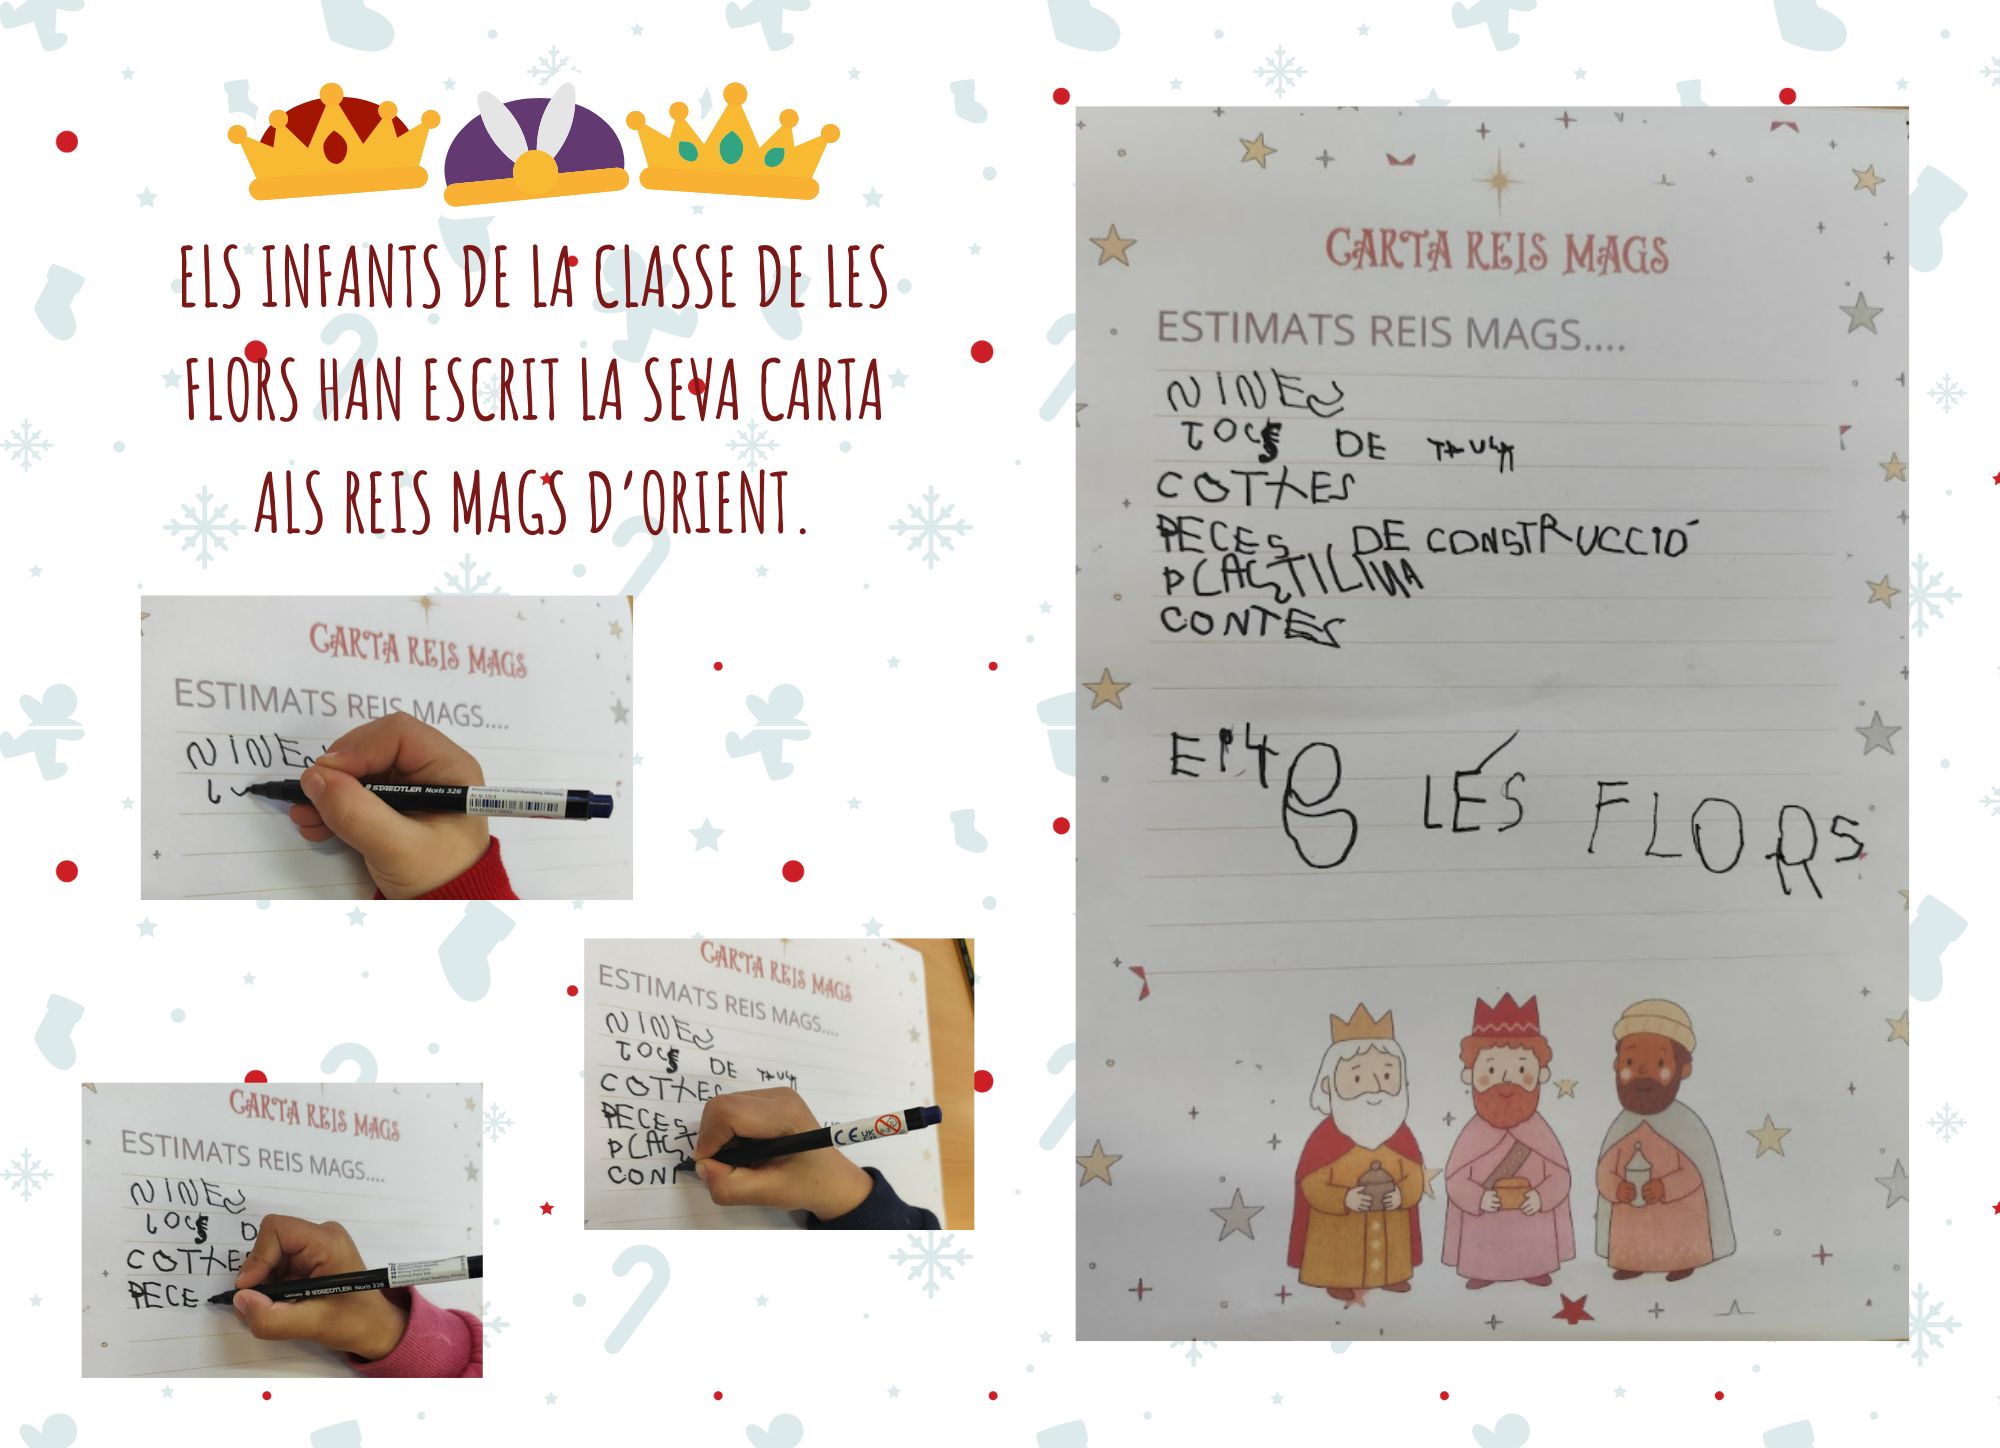 ELS INFANTS DE LA CLASSE DE LES
FLORS HAN ESCRIT LA SEVA CARTA
ALS REIS MAGS D'ORIENT.
CARTA REIS MAGS
ESTIMATS REIS MAGS....
NINES
STAEDTLER Noris 326
CARTA REIS MAGS
ESTIMATS REIS MAGS....
NINES
TOCS DE
COTXES
PECES
PLAST
CONT
CE
CARTA REIS MAGS
ESTIMATS REIS MAGS....
NINES
COTXES
PECE
STAEDTLER Noris 326
CARTA REIS MAGS
ESTIMATS REIS MAGS....
NINES
TOCS DE
COTXES
PECES DE CONSTRUCCIÓ
PLASTILINA
CONTES
LES FLORS